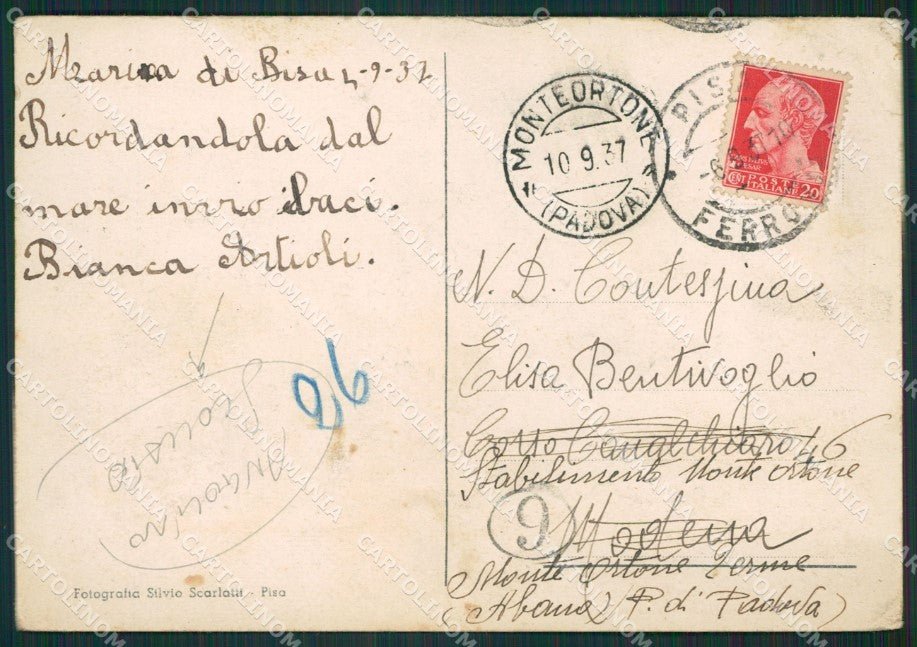 Marina di Pisa 4-9-37
Ricordandola dal
mare invio baci.
Bianca Artioli.
96
Fotografia Silvio Scarlatti - Pisa
MONTEORTONE
10.9.37
(PADOVA)
PISA
FERRO
POSTE
ITALIANE
CENT 20
N. D. Contessina
Elisa Bentivoglio
Corso 46
Stabilimento Monte Ortone
9
Modena
Monte Ortone Terme
(Abano) P. di Padova)
CARTOLINOMANIA